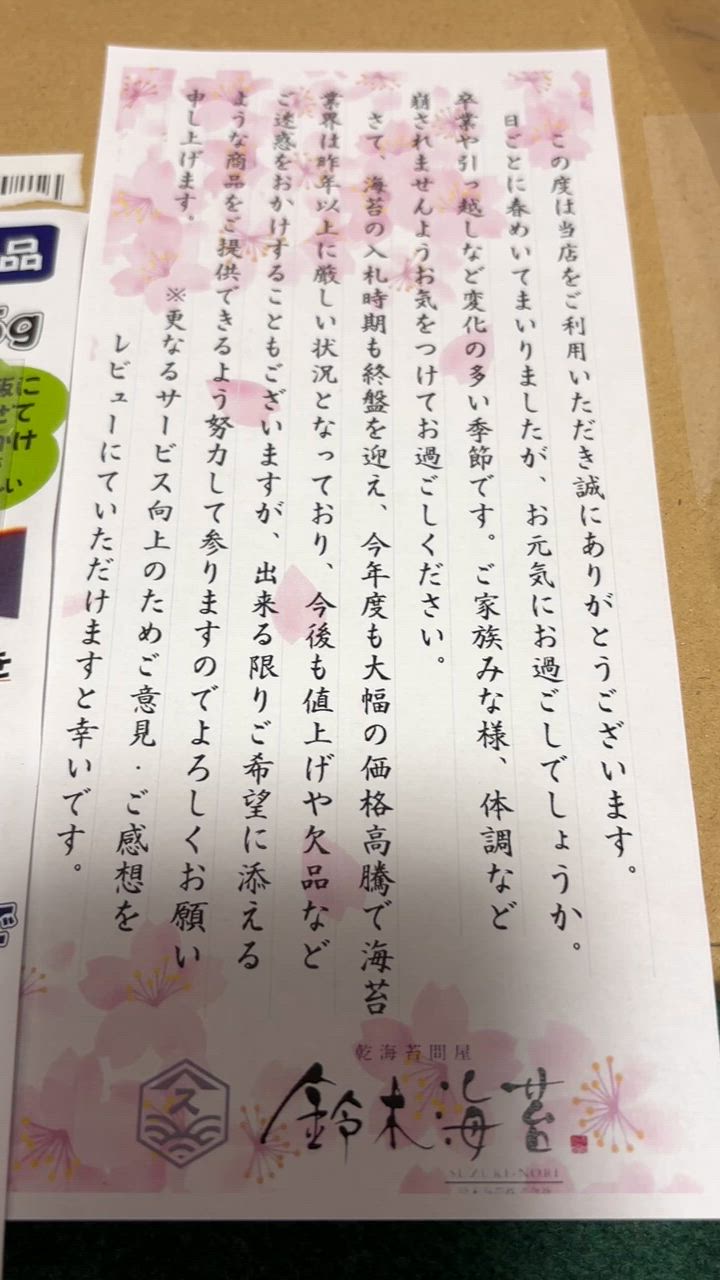 この度は当店をご利用いただき誠にありがとうございます。
日ごとに春めいてまいりましたが、お元気にお過ごしでしょうか。
卒業や引っ越しなど変化の多い季節です。ご家族みな様、体調など
崩されませんようお気をつけてお過ごしください。
さて、海苔の入札時期も終盤を迎え、今年度も大幅の価格高騰で海苔
業界は昨年以上に厳しい状況となっており、今後も値上げや欠品など
ご迷惑をおかけすることもございますが、出来る限りご希望に添える
ような商品をご提供できるよう努力して参りますのでよろしくお願い
申し上げます。
※更なるサービス向上のためご意見・ご感想を
レビューにていただけますと幸いです。
乾海苔問屋
鈴木海苔
SUZUKI-NORI
ス
品
5g